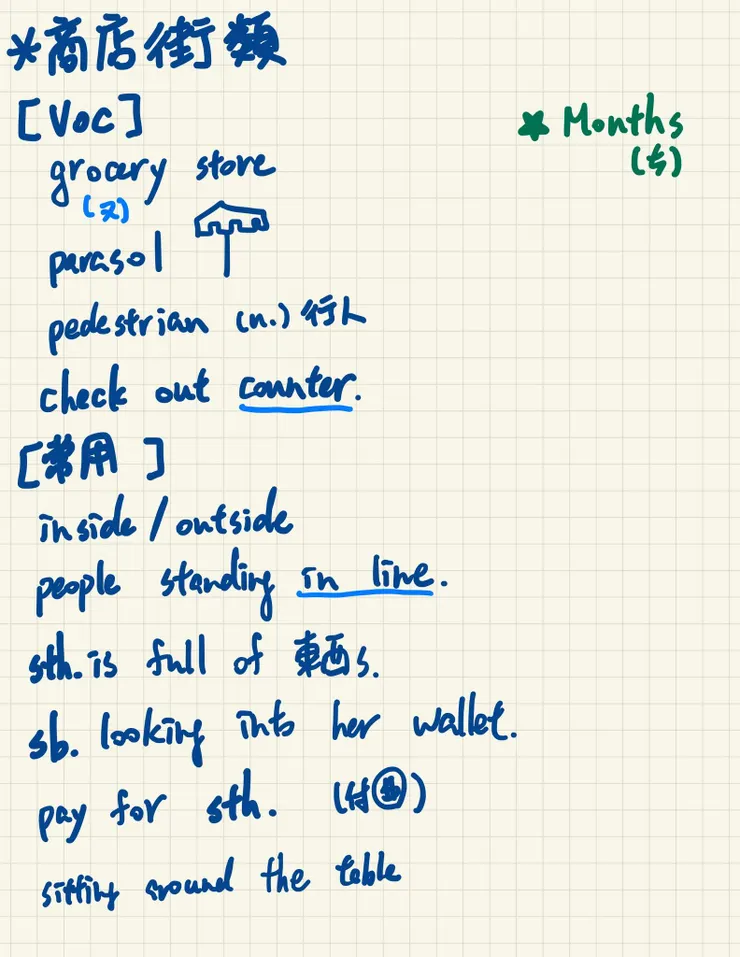 *商店街類
[Voc]
★ Months
(ㄘ)
grocery store
(ㄡ)
parasol
pedestrian (n.) 行人
check out counter.
[常用 ]
inside / outside
people standing in line.
sth. is full of 東西s.
sb. looking into her wallet.
pay for sth. (付)
sitting around the table